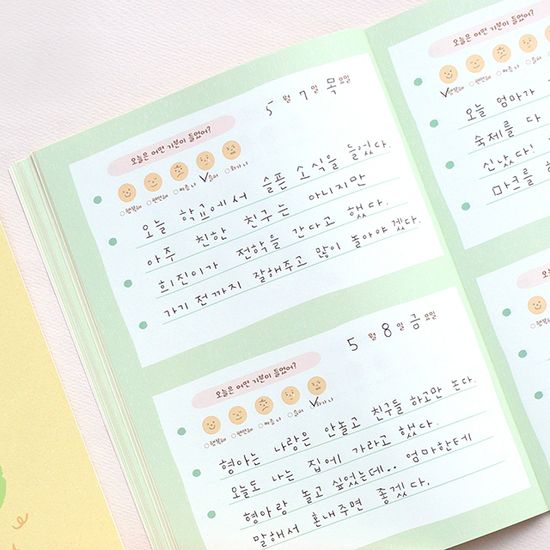 5 월 7 일 목 요일
오늘은 어떤 기분이 들었어?
행복해 편안해 슬퍼 화가 나
오늘 학교에서 슬픈 소식을 들었다.
아주 친한 친구는 아니지만
희진이가 전학을 간다고 했다.
가기 전까지 잘해주고 많이 놀아야겠다.
5 월 8 일 금 요일
오늘은 어떤 기분이 들었어?
행복해 편안해 화가 나
형아는 나랑은 안놀고 친구들 하고만 논다.
오늘도 나는 집에 가라고 했다.
형아랑 놀고 싶었는데.. 엄마한테
말해서 혼내주면 좋겠다.
오늘은 어떤 기분이
행복해 편안해
오늘 엄마가
숙제를 다
신났다!
마크를
오늘은